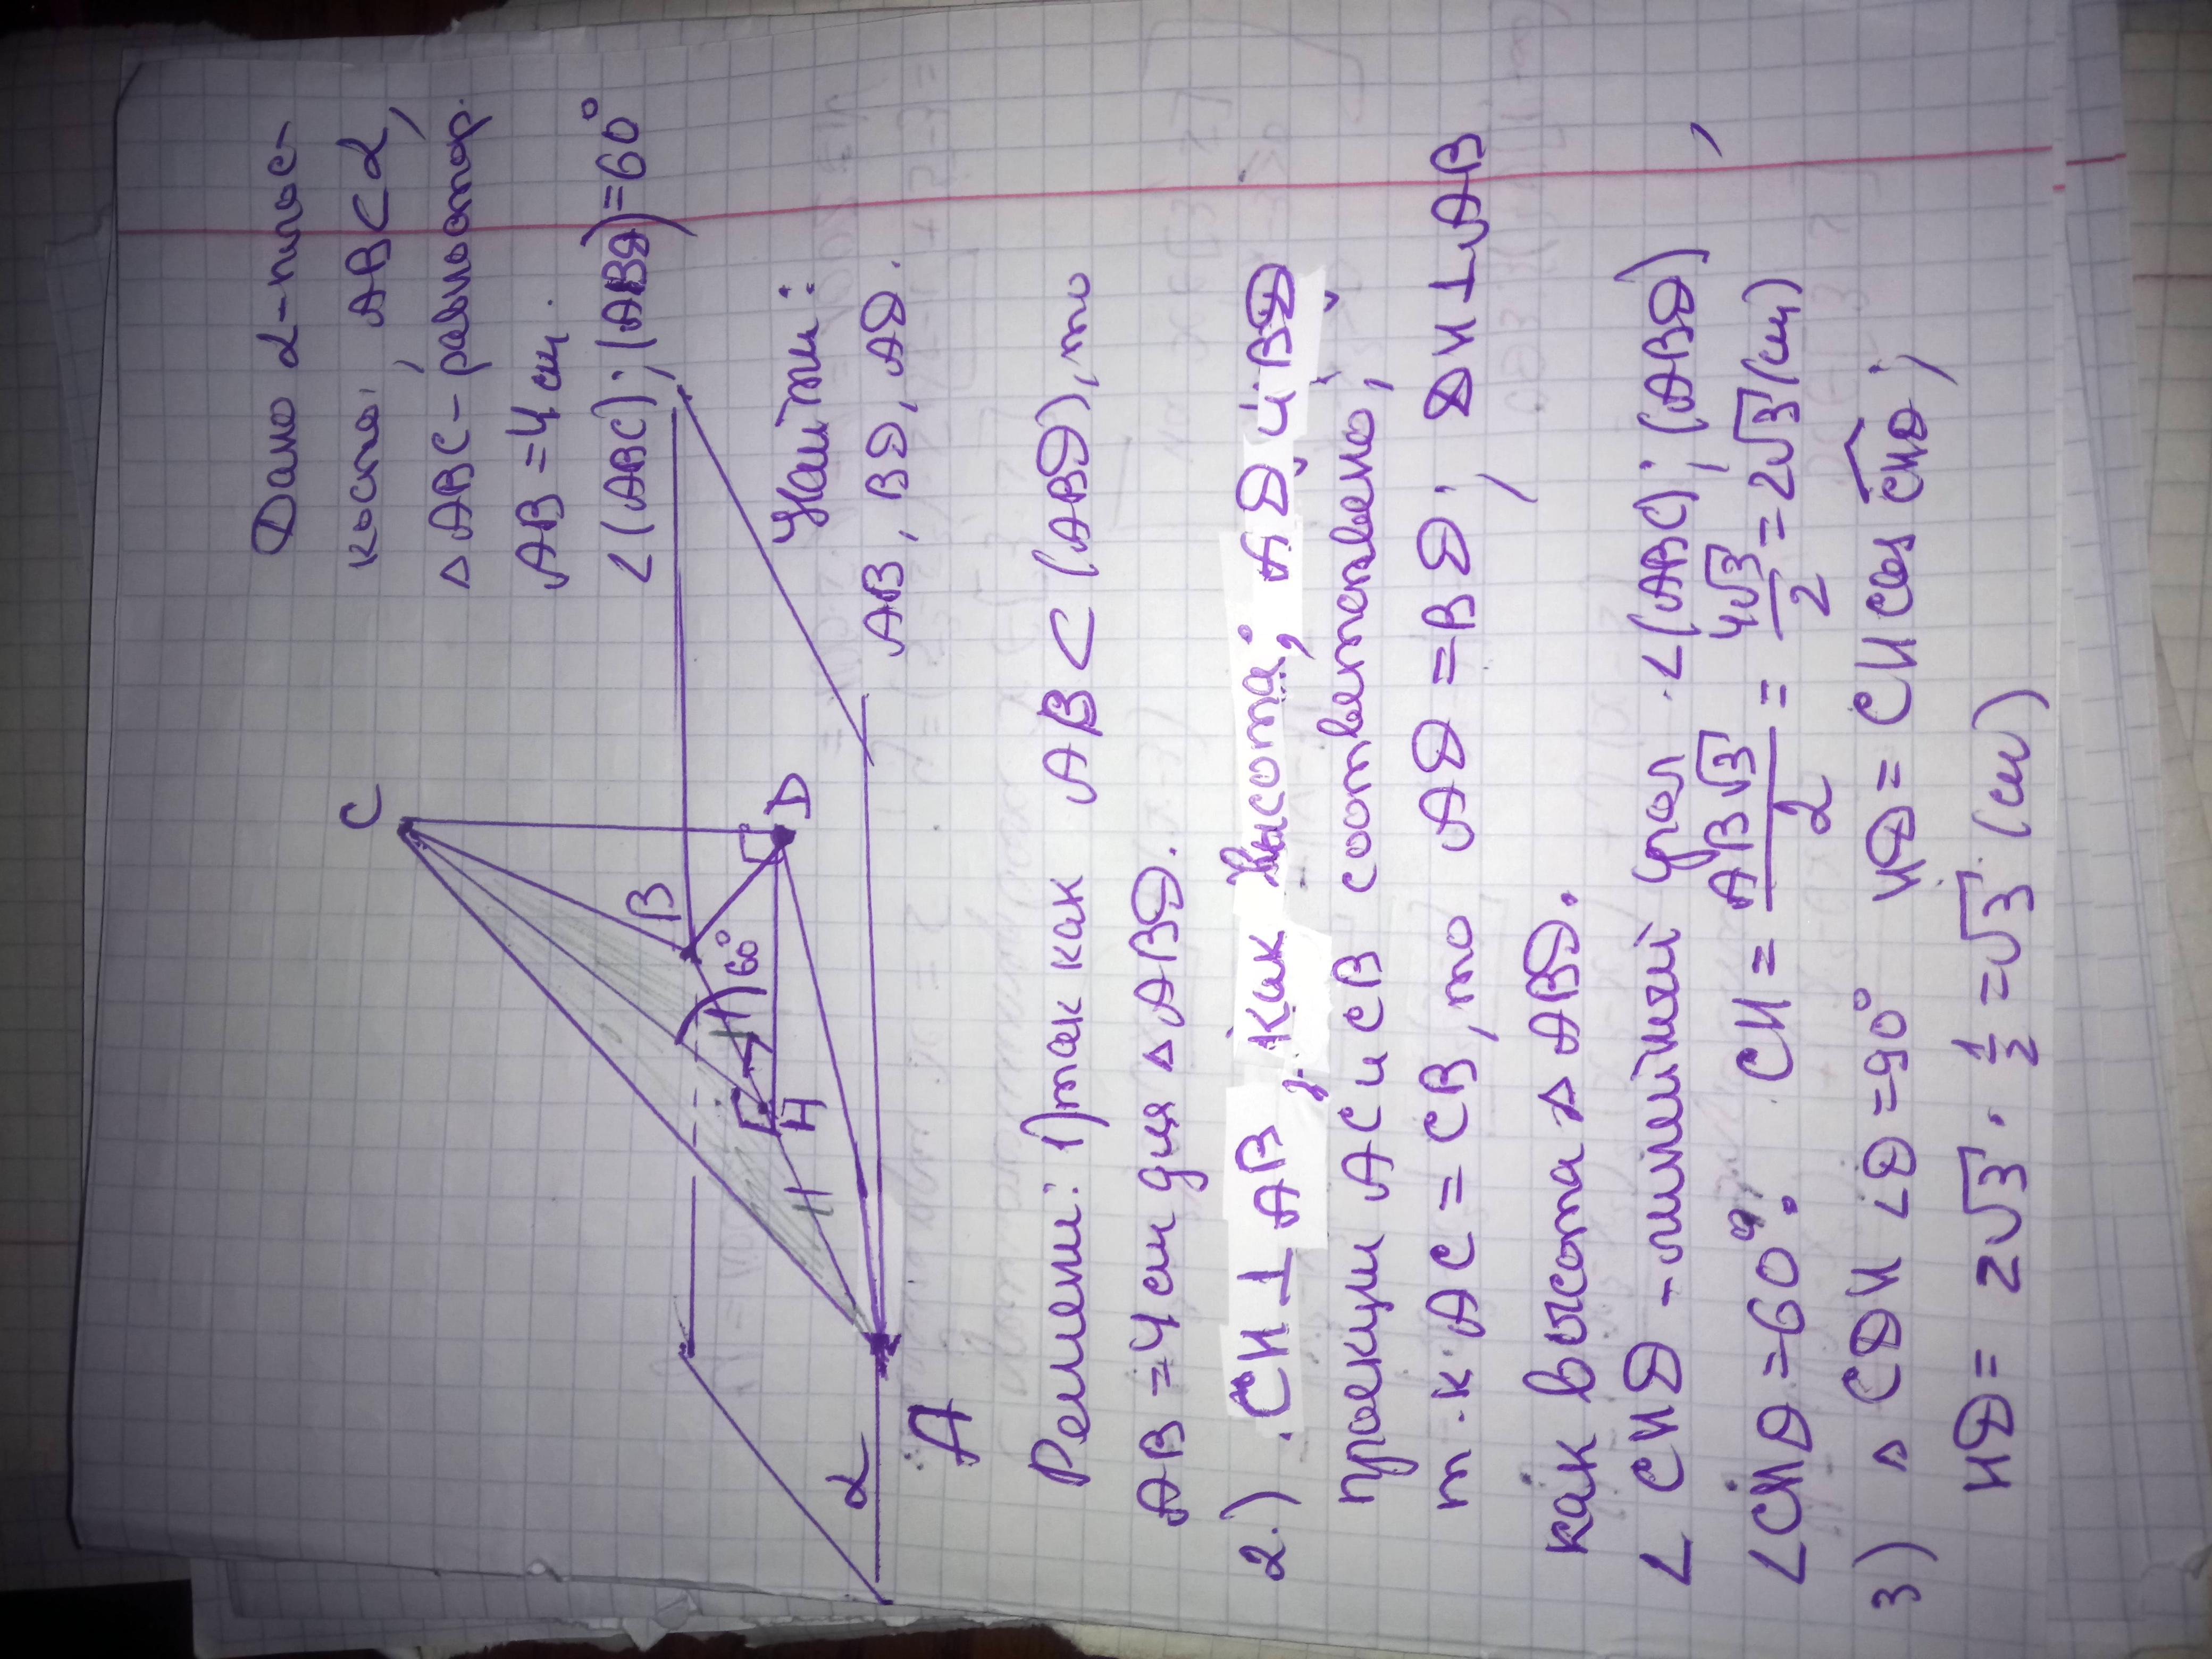 Дано α-плос-
кость, ABCα,
△ABC - равностор.
AB = 4 см.
∠(ABC); (ABD) = 60°
Найти:
AB, BD, AD.
C
B
60°
D
H
α
A
Решени: 1) так как ABC (ABD), то
AB = 4 см для △ABD.
2.) CH ⊥ AB, как высота; AD и BD
проекции AC и CB соответственно,
т.к AC = CB, то AD = BD; DH ⊥ AB
как высота △ABD.
∠CHD - линейный угол ∠(ABC); (ABD),
∠CHD = 60°. CH = AB√3/2 = 4√3/2 = 2√3 (см)
3) △CDH ∠D = 90° HD = CH cos CHD;
HD = 2√3 · 1/2 = √3 (см)